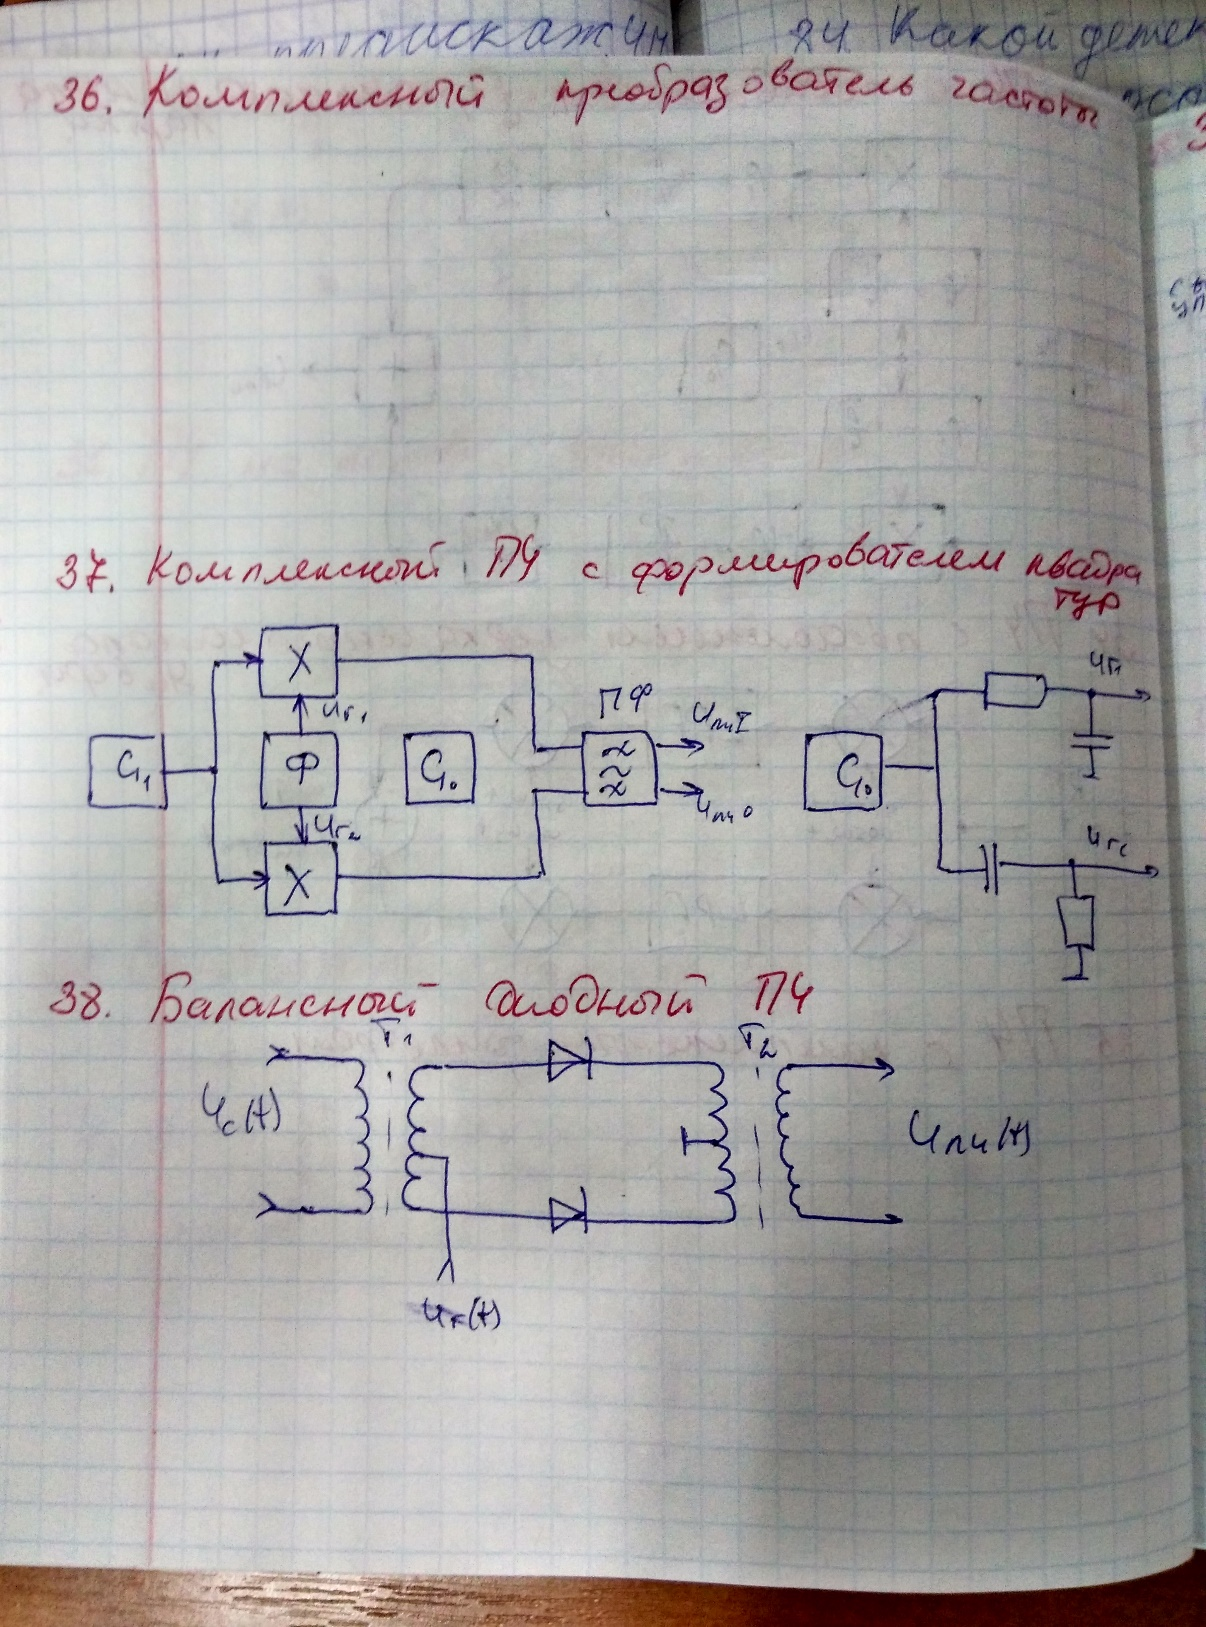 24. Какой детек
36. Комплексный преобразователь частоты
37. Комплексный ПЧ с формирователем квадра
тур
X
uг1
G1
Ф
G0
ПФ
uпчI
uпчQ
uг2
X
G0
uг1
uгс
38. Балансный диодный ПЧ
T1
T2
Uc(t)
Uпч(t)
uг(t)